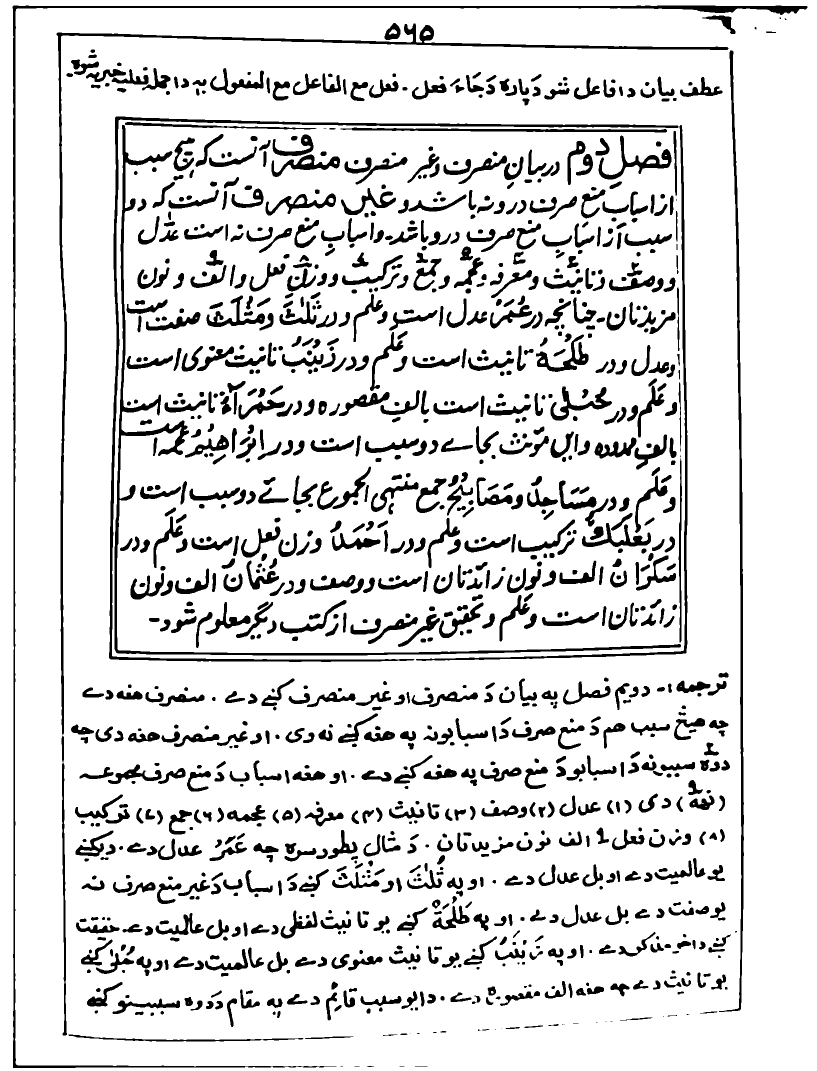 ۵۶۵
عطف بیان دا فاعل شو دَ پاره دَ جَاءَ فعل . فعل مع الفاعل مع المفعول بہ دا جمله فعلیه خبریه شوه
فصل دوم در بیانِ منصرف و غیر منصرف منصرف آنست کہ ہیچ سبب
از اسبابِ منع صرف درو نہ باشد و غیر منصرف آنست کہ دو
سبب از اسبابِ منع صرف درو باشد۔ و اسبابِ منع صرف نہ است عدل
و وصف و تانیث و معرفہ و عجمہ و جمع و ترکیب و وزن فعل و الف و نون
مزیدتان۔ چنانچہ در عُمَرُ عدل است و علم و در ثُلٰثُ و مَثْلَثُ صفت است
و عدل و در طَلْحَةُ تانیث است و عَلم و در زَیْنَبُ تانیث معنوی است
و عَلَم و در حُبْلٰی تانیث است بالفِ مقصوره و در حَمْرَآءُ تانیث است
بالفِ ممدوده و ایں مؤنث بجاے دو سبب است و در اِبْرَاهِیْمُ عجمہ است
و عَلَم و در مَسَاجِدُ و مَصَابِیْحُ جمع منتہی الجموع بجاے دو سبب است و
در بَعْلَبَكُّ ترکیب است و علم و در اَحْمَدُ وزن فعل است و عَلَم و در
سَکْرَانُ الف و نون زائدتان است و وصف و در عُثْمَانُ الف و نون
زائدتان است و عَلَم و تحقیق غیر منصرف از کتب دیگر معلوم شود۔
ترجمه:۔ دویم فصل په بیان دَ منصرف او غیر منصرف کښے دے . منصرف هغه دے
چه هیڅ سبب هم دَ منع صرف دَ اسبابونه په هغه کښے نه وی . او غیر منصرف هغه دی چه
دوه سببونه دَ اسبابو دَ منع صرف په هغه کښے دے . او هغه اسباب دَ منع صرف مجموعه
(نهه) دی (۱) عدل (۲) وصف (۳) تانیث (۴) معرفه (۵) عجمه (۶) جمع (۷) ترکیب
(۸) وزن فعل ۹ الف نون مزیدتان . دَ مثال پطور سره چه عُمَرُ عدل دے . دیکښے
یو عالمیت دے او بل عدل دے . او په ثُلٰثَ او مَثْلَثَ کښے دَ اسباب دَ غیر منع صرف نه
یو صفت دے بل عدل دے . او په طَلْحَةُ کښے یو تانیث لفظی دے او بل عالمیت دے . حقیقت
کښے دا خو مذکر دے . او په زَیْنَبُ کښے یو تانیث معنوی دے بل عالمیت دے او په حُبْلٰی کښے
یو تانیث دے چه هغه الف مقصوره دے . دا یو سبب قائم دے په مقام دَ دوه سببینو کښے